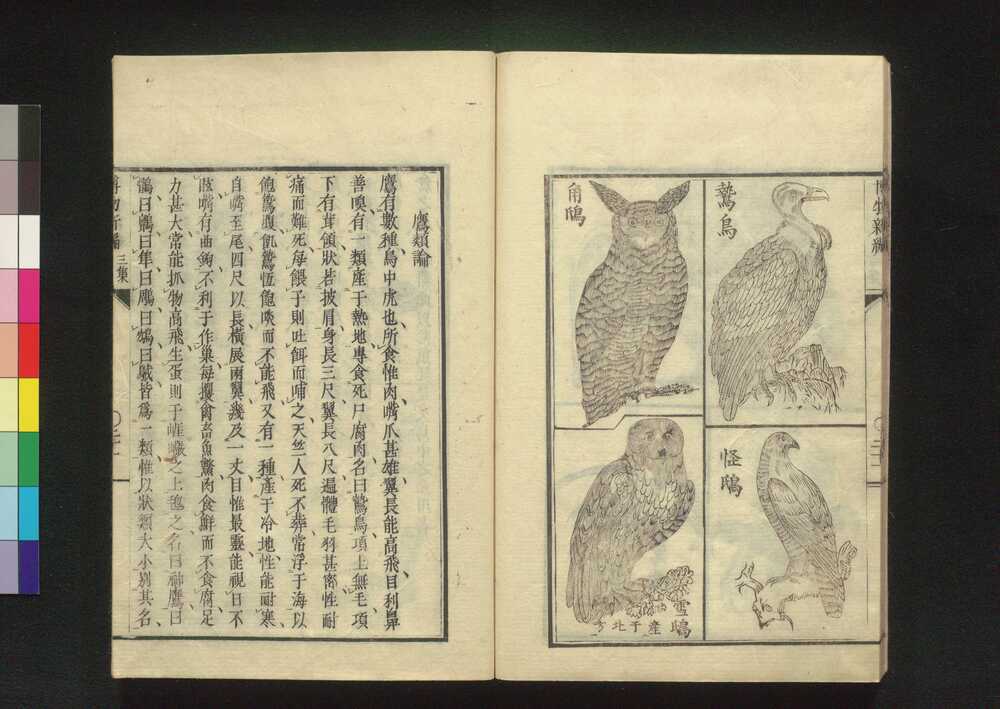 博物新編
鷲鳥
角鴟
怪鴟
雪鴟
產于北方
鷹類論
鷹有數種鳥中虎也所食惟肉嘴爪甚雄翼長能高飛目利鼻
善嗅有一類產于熱地專食死尸腐肉名曰鷲鳥項上無毛項
下有茸領狀若披肩身長三尺翼長八尺遍體毛羽甚密性耐
痛而難死每餵子則吐餌而哺之天竺人死不葬常浮于海以
飽鷲腹飢鷲恆飽啖而不能飛又有一種產于冷地性能耐寒
自嘴至尾四尺以長橫展兩翼幾及一丈目惟最靈能視日不
眩嘴有曲鉤不利于作巢每攫禽畜魚鱉肉食鮮而不食腐足
力甚大常能抓物高飛生蛋則于崕巘之上毡之名曰神鷹曰
鶻曰鸇曰隼曰鵰曰鴆曰 皆為一類惟以狀類大小別其名
博物新編 三集